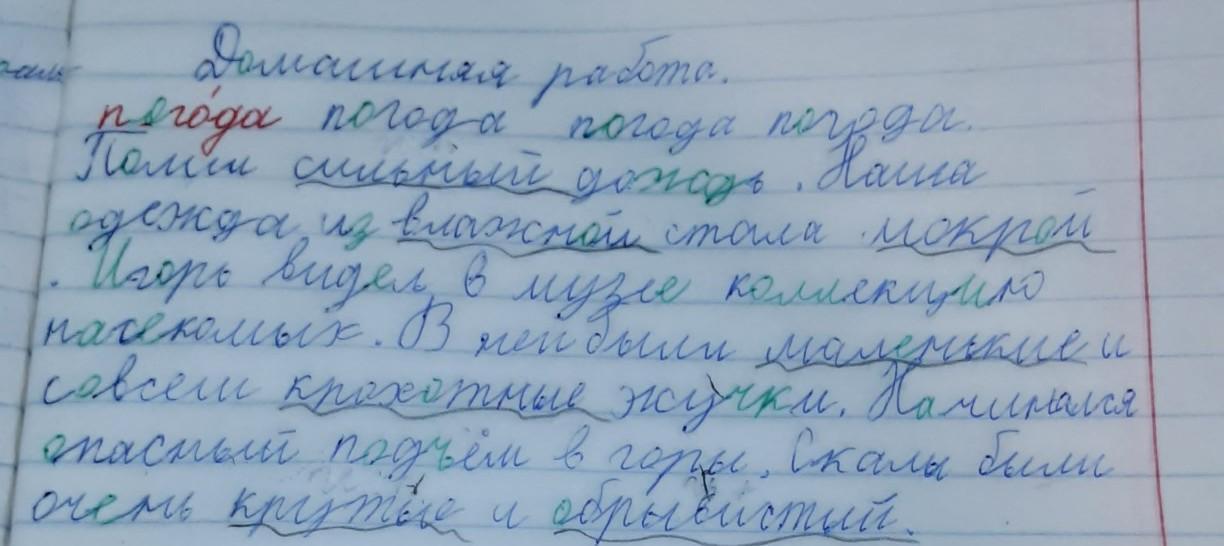 Домашняя работа.
пого́да погода погода погода.
Полил сильный дождь. Наша
одежда из влажной стала мокрой
. Игорь видел в музее коллекцию
насекомых. В ней были маленькие и
совсем крохотные жучки. Начинался
опасный подъём в горы. Скалы были
очень крутые и обрывистый.